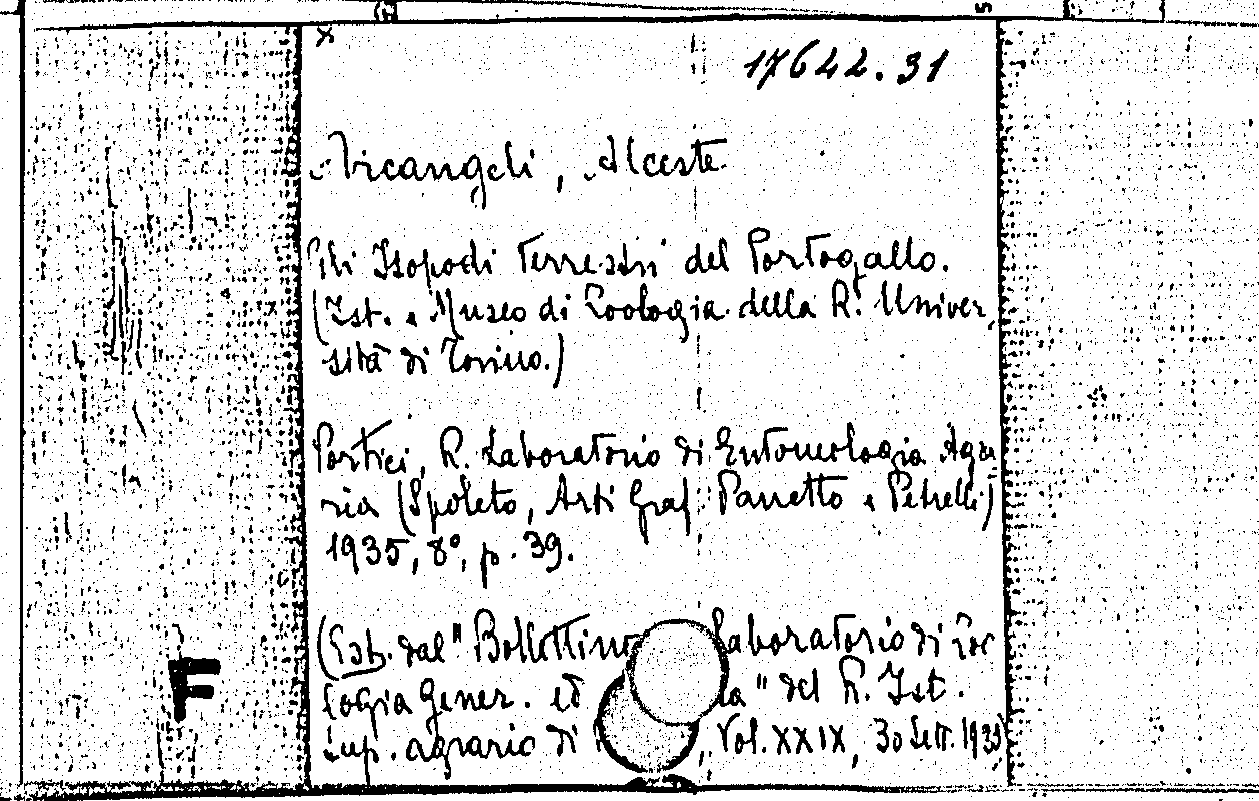 17642.31
Arcangeli, Alceste
Gli Isopodi terrestri del Portogallo.
(Ist. e Museo di Zoologia della R. Univer,
sità di Torino.)
Portici, R. Laboratorio di Entomologia Agra
ria (Spoleto, Arti Graf. Panetto e Petrelli)
1935, 8°, p. 39.
(Est. dal "Bollettino Laboratorio di Zoo
logia Gener. ed "del R. Ist.
Sup. agrario di , Vol. XXIX, 30 Sett. 1935)
F